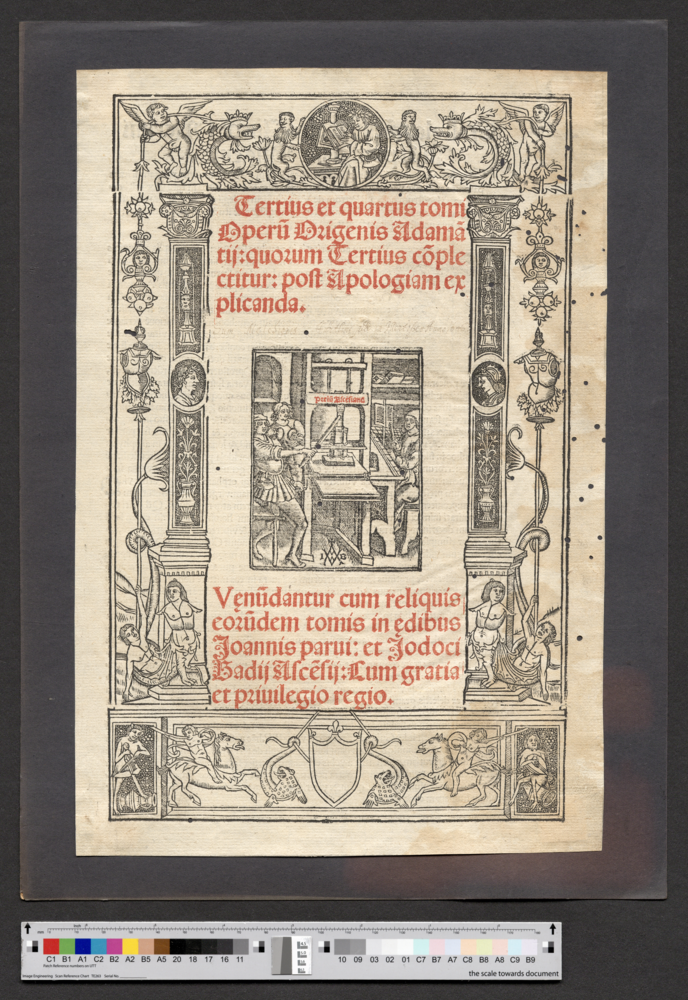 Tertius et quartus tomi
Operū Origenis Adamā
tij: quorum Tertius cōple
ctitur: post Apologiam ex
plicanda.
Prelū Ascēsianū
Venūdantur cum reliquis
eorūdem tomis in edibus
Joannis parui: et Jodoci
Badij Ascēsij: Cum gratia
et priuilegio regio.
C1 B1 A1 C2 B2 A2 B5 A5 20 18 17 16 11 10 09 03 02 01 C7 B7 A7 C8 B8 A8 C9 B9
the scale towards document